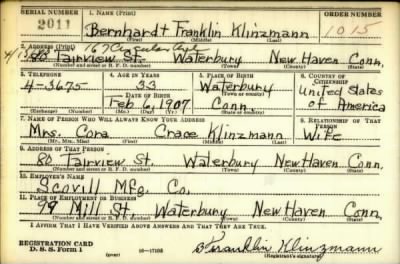 SERIAL NUMBER 1. NAME (Print) ORDER NUMBER
2011 Bernhardt Franklin Klinzmann 1015
(First) (Middle) (Last)
2. ADDRESS (Print)
80 Fairview St. Waterbury New Haven Conn.
(Number and street or R. F. D. number) (Town) (County) (State)
3. TELEPHONE 4. AGE IN YEARS 5. PLACE OF BIRTH 6. COUNTRY OF CITIZENSHIP
4-3675 33 Waterbury United States
DATE OF BIRTH
Feb 6, 1907 Conn. of America
(Exchange) (Number) (Mo.) (Day) (Yr.) (State or country)
7. NAME OF PERSON WHO WILL ALWAYS KNOW YOUR ADDRESS 8. RELATIONSHIP OF THAT PERSON
Mrs. Cora Klinzmann Wife
(Mr., Mrs., Miss) (First) (Middle) (Last)
9. ADDRESS OF THAT PERSON
80 Fairview St. Waterbury New Haven Conn.
(Number and street or R. F. D. number) (Town) (County) (State)
10. EMPLOYER'S NAME
Scovill Mfg. Co.
11. PLACE OF EMPLOYMENT OR BUSINESS
99 Mill St. Waterbury New Haven Conn.
(Number and street or R. F. D. number) (Town) (County) (State)
I AFFIRM THAT I HAVE VERIFIED ABOVE ANSWERS AND THAT THEY ARE TRUE.
REGISTRATION CARD
D. S. S. FORM 1 (over) B Franklin Klinzmann
(Registrant's signature)